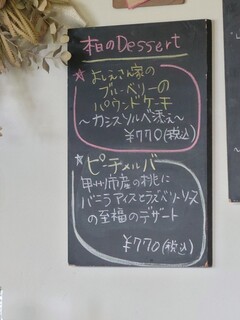 本日のDessert
よしえさん家の
ブルーベリーの
パウンドケーキ
～カシスソルベ添え～
¥770(税込)
ピーチメルバ
甲州市産の桃に
バニラアイスとラズベリーソース
の至福のデザート
¥770(税込)